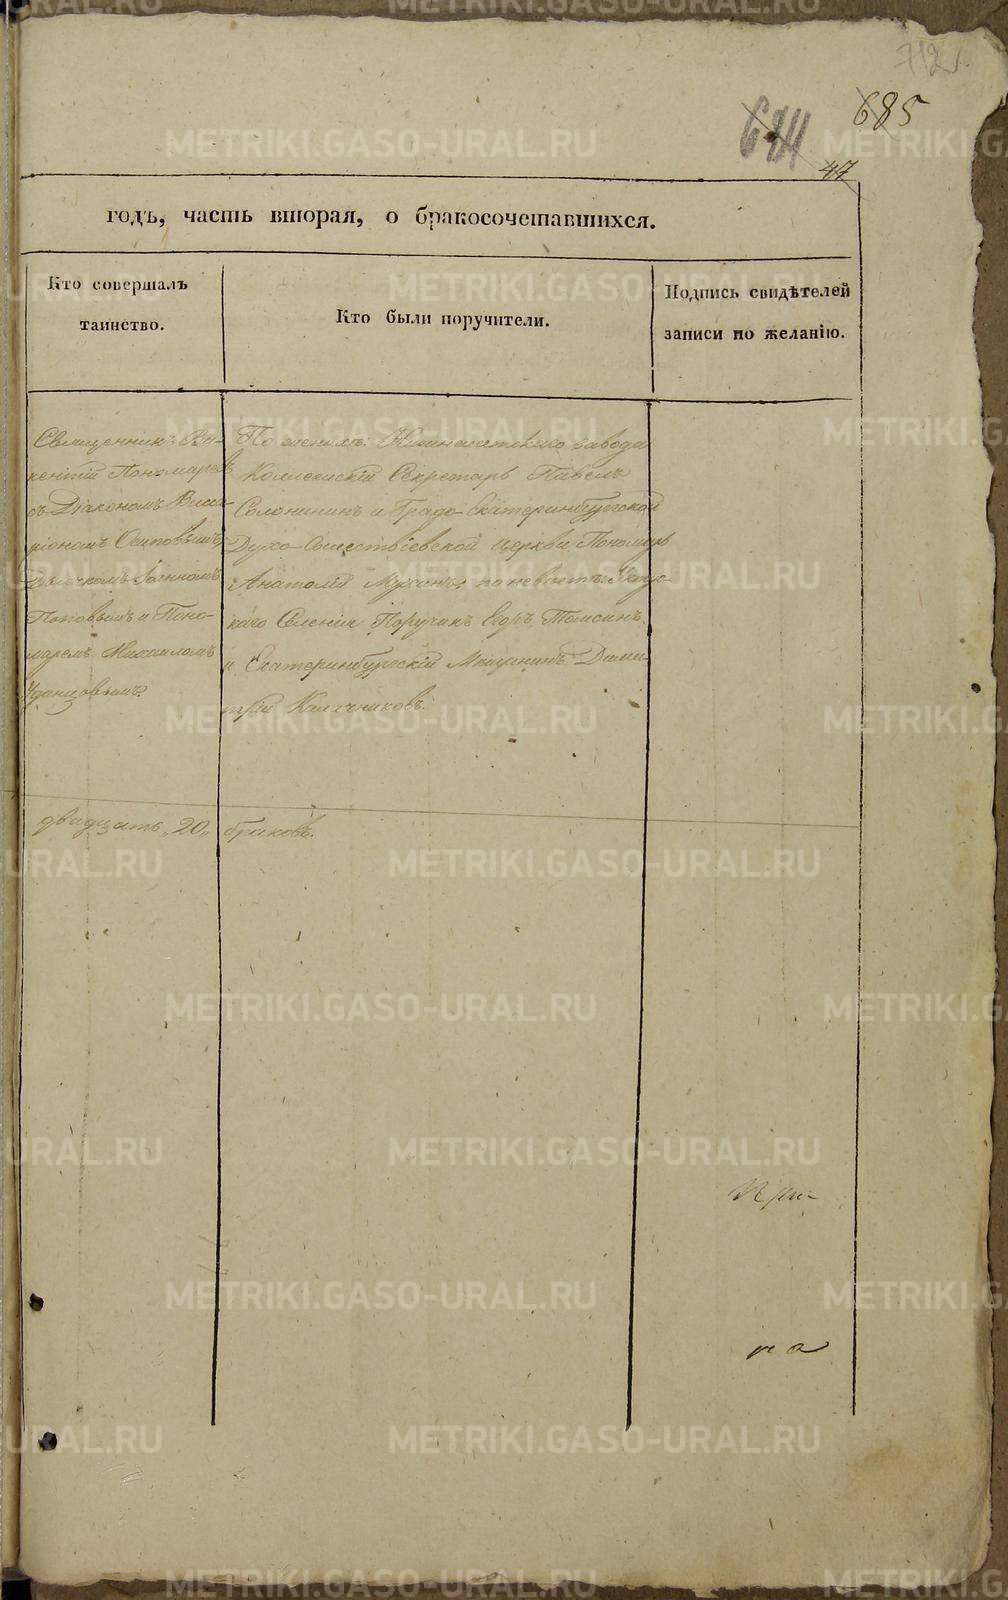 712
684
685
47
годъ, часть вторая, о бракосочетавшихся.
Кто совершалъ
таинство.
Кто были поручители.
Подпись свидѣтелей
записи по желанію.
Священникъ Ви-
кентій Пономаревъ
съ Діакономъ Висса-
ріономъ Осиповымъ,
Дьячкомъ Іоанномъ
Поповымъ и Поно-
маремъ Михаиломъ
Удинцовымъ.
По женихѣ: Нижнеисетскаго завода
Коллежскій Секретарь Павелъ
Солонининъ и Градо-Екатеринбургской
Духо-Сошествіевской церкви Пономарь
Анатолій Мухинъ; по невѣстѣ: Уктус-
каго Селенія Поручикъ Егоръ Томсинъ
и Екатеринбургскій Мѣщанинъ Дими-
трій Калачниковъ.
двадцать „20„ браковъ.
При-
на
METRIKI.GASO-URAL.RU